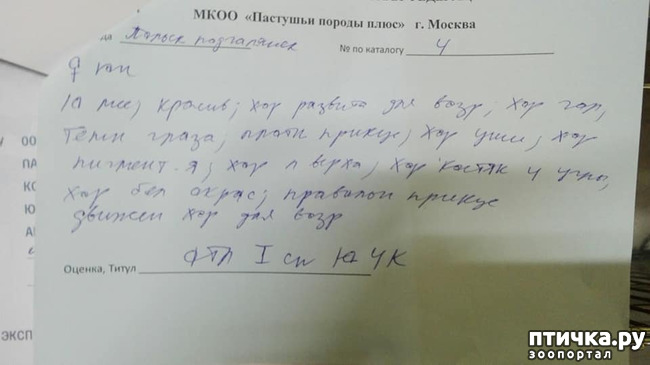 МКОО «Пастушьи породы плюс» г. Москва
да Польск подгалянск № по каталогу 4
♀ юн
10 мес, красив; хор развита для возр; хор гол,
темн глаза; плотн прикус; хор уши; хор
пигмент. я; хор л верха; хор костяк и углы,
хор бел окрас; правильн прикус
движен хор для возр
Оценка, Титул I ЮЧК
ОО
ПА
КО
Ю
ЭКСП
ПТИЧКА.РУ
ЗООПОРТАЛ